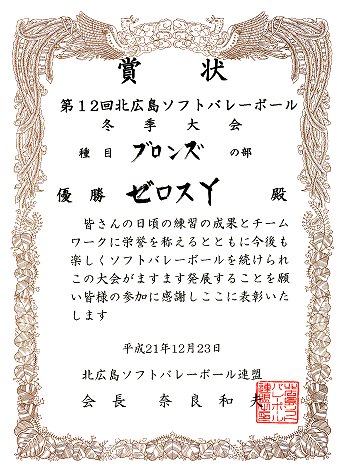 賞状
第12回北広島ソフトバレーボール
冬季大会
種目 ブロンズ の部
優勝 ゼロスY 殿
皆さんの日頃の練習の成果とチーム
ワークに栄誉を称えるとともに今後も
楽しくソフトバレーボールを続けられ
この大会がますます発展することを願
い皆様の参加に感謝しここに表彰いた
します
平成21年12月23日
北広島ソフトバレーボール連盟
会長 奈良和夫